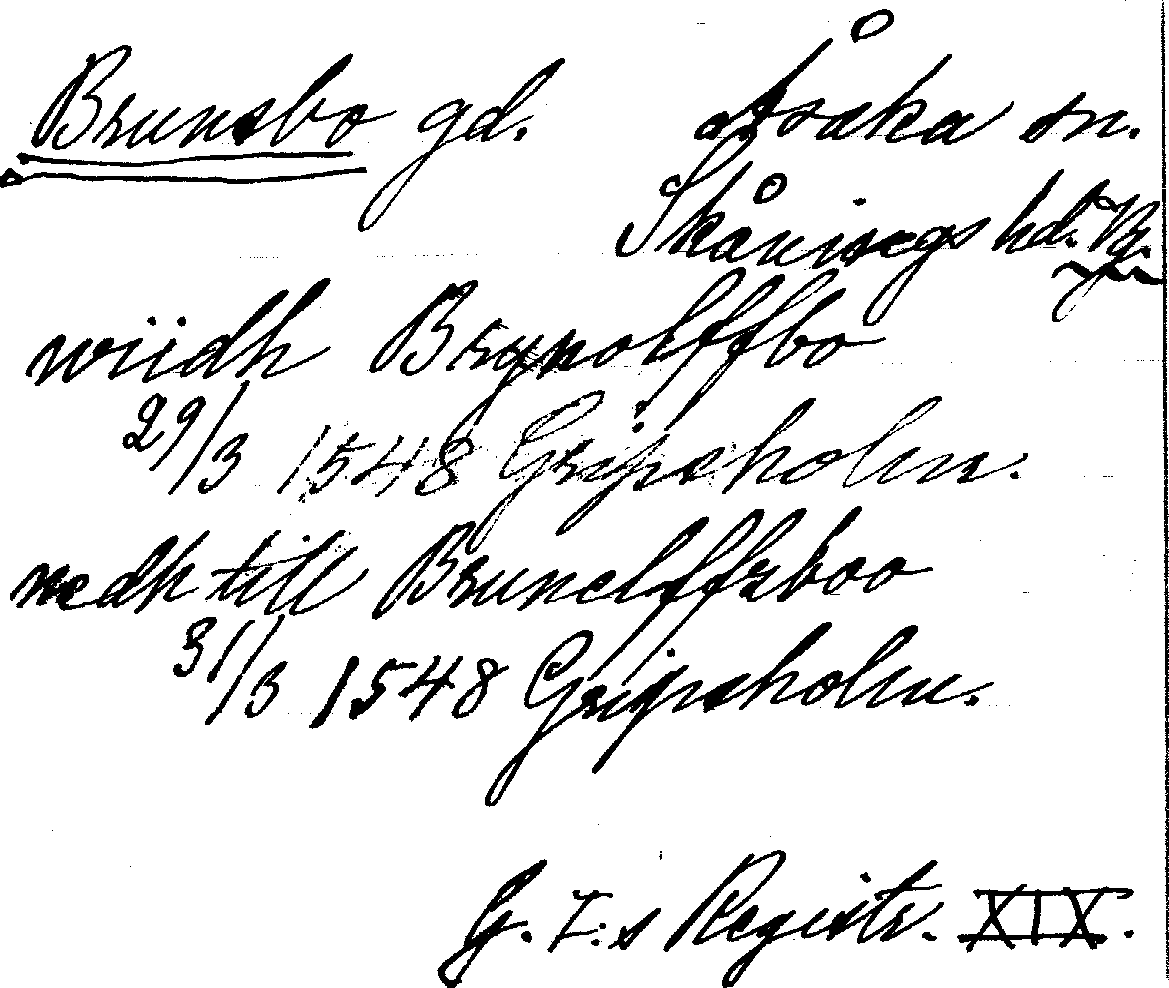 Brunsbo gd. Åsaka sn.
Skånings hd. Vg.
wiidh Brynolffbo
29/3 1548 Gripsholm.
nedh till Brunelffzboo
31/3 1548 Gripsholm.
G. I:s Registr. XIX.